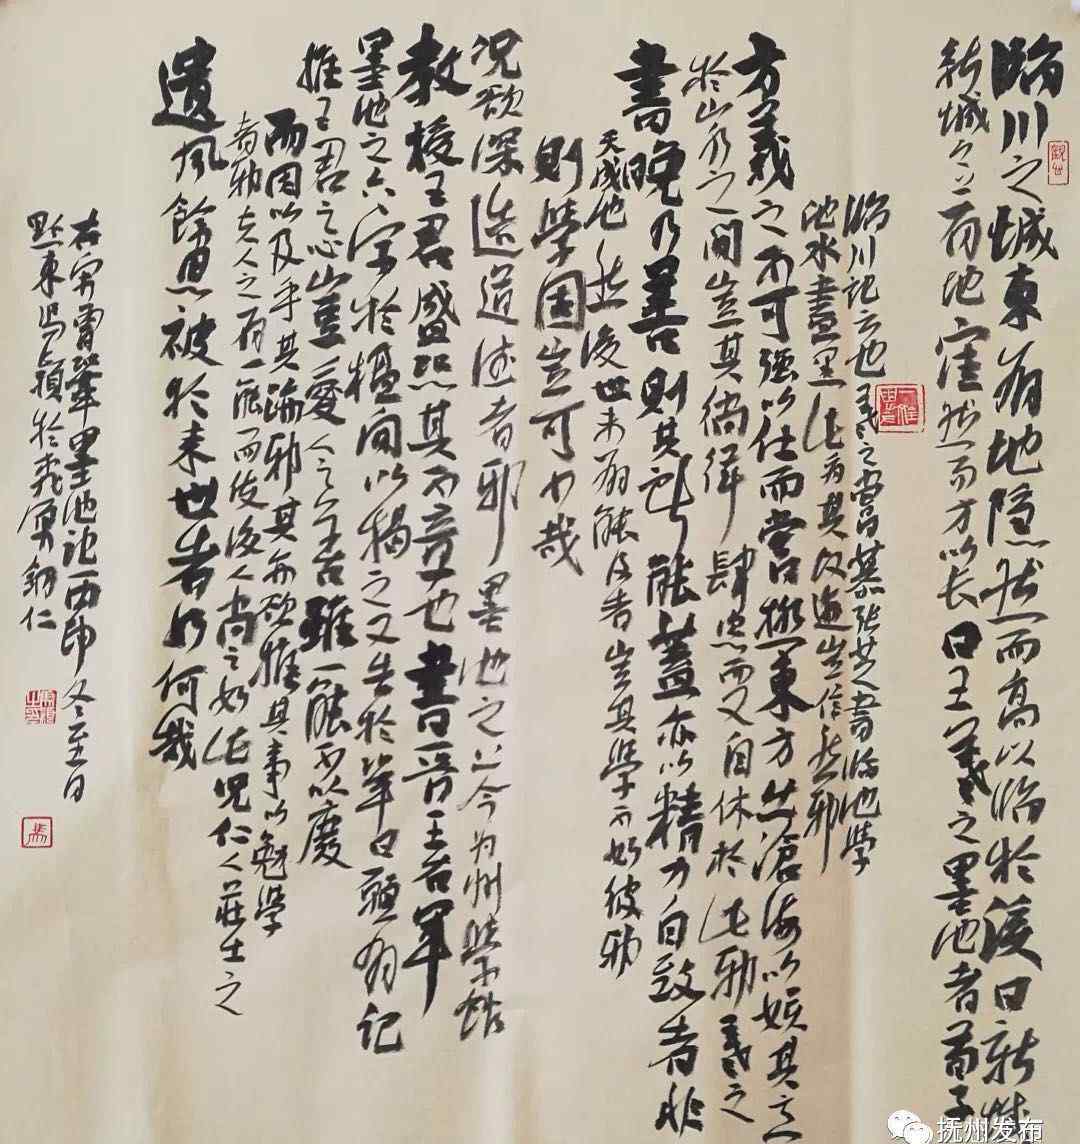 臨川之城東有地隱然而高以臨於溪曰新城
新城之上有池窪然而方以長曰王羲之墨池者荀子
臨川記云也羲之嘗慕張芝書臨池學
池水盡黑此為其故迹豈信然邪
方羲之之不可強以仕而嘗極東方出滄海以娛其意
於山水之間豈其徜徉肆恣而又自休於此邪羲之
書晚乃善則其所能蓋亦以精力自致者非
天成也然後世未有能及者豈其學不如彼邪
則學固豈可少哉
況欲深造道德者邪墨池之上今為州學舍
教授王君盛恐其不章也書晉王右軍
墨池之六字於楹間以揭之又告於鞏曰願有記
推王君之心豈愛人之善雖一能不以廢
而因以及乎其迹邪其亦欲推其事以勉學
者邪夫人之有一能而使後人尚之如此況仁人莊士之
遺風餘思被於來世者如何哉
右宋曾鞏墨池記丙申冬至日
黔東
抚州发布